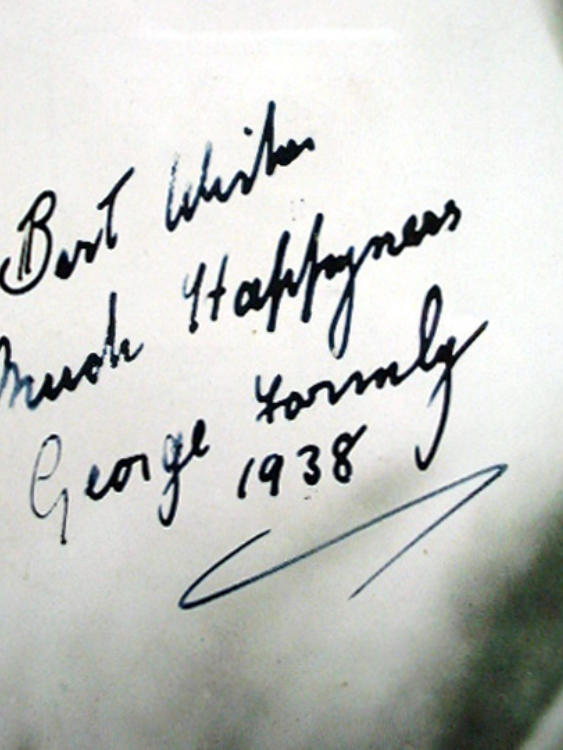 Best Wishes
Much Happyness
George Formby
1938